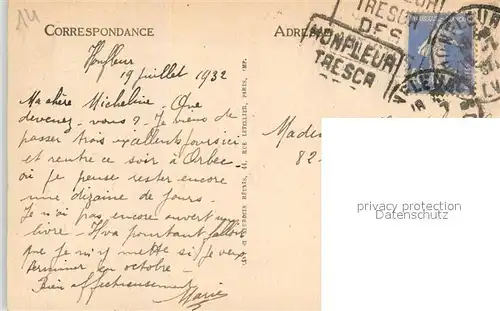 14
CORRESPONDANCE
ADRESSE
HONFLEUR
TRESCA
DES
HONFLEUR
TRESCA
Honfleur
19 juillet 1932
Ma chère Micheline. Que
devenez-vous? Je viens de
passer trois excellents jours ici
et rentre ce soir à Orbec
où je pense rester encore
une dizaine de jours.
Je n'ai pas encore ouvert un
livre. Il va pourtant falloir
que je m'y mette si je veux
terminer en octobre.
Bien affectueusement
Marie
RUE LETELLIER, PARIS, IMP.
Made
82
privacy protection
Datenschutz